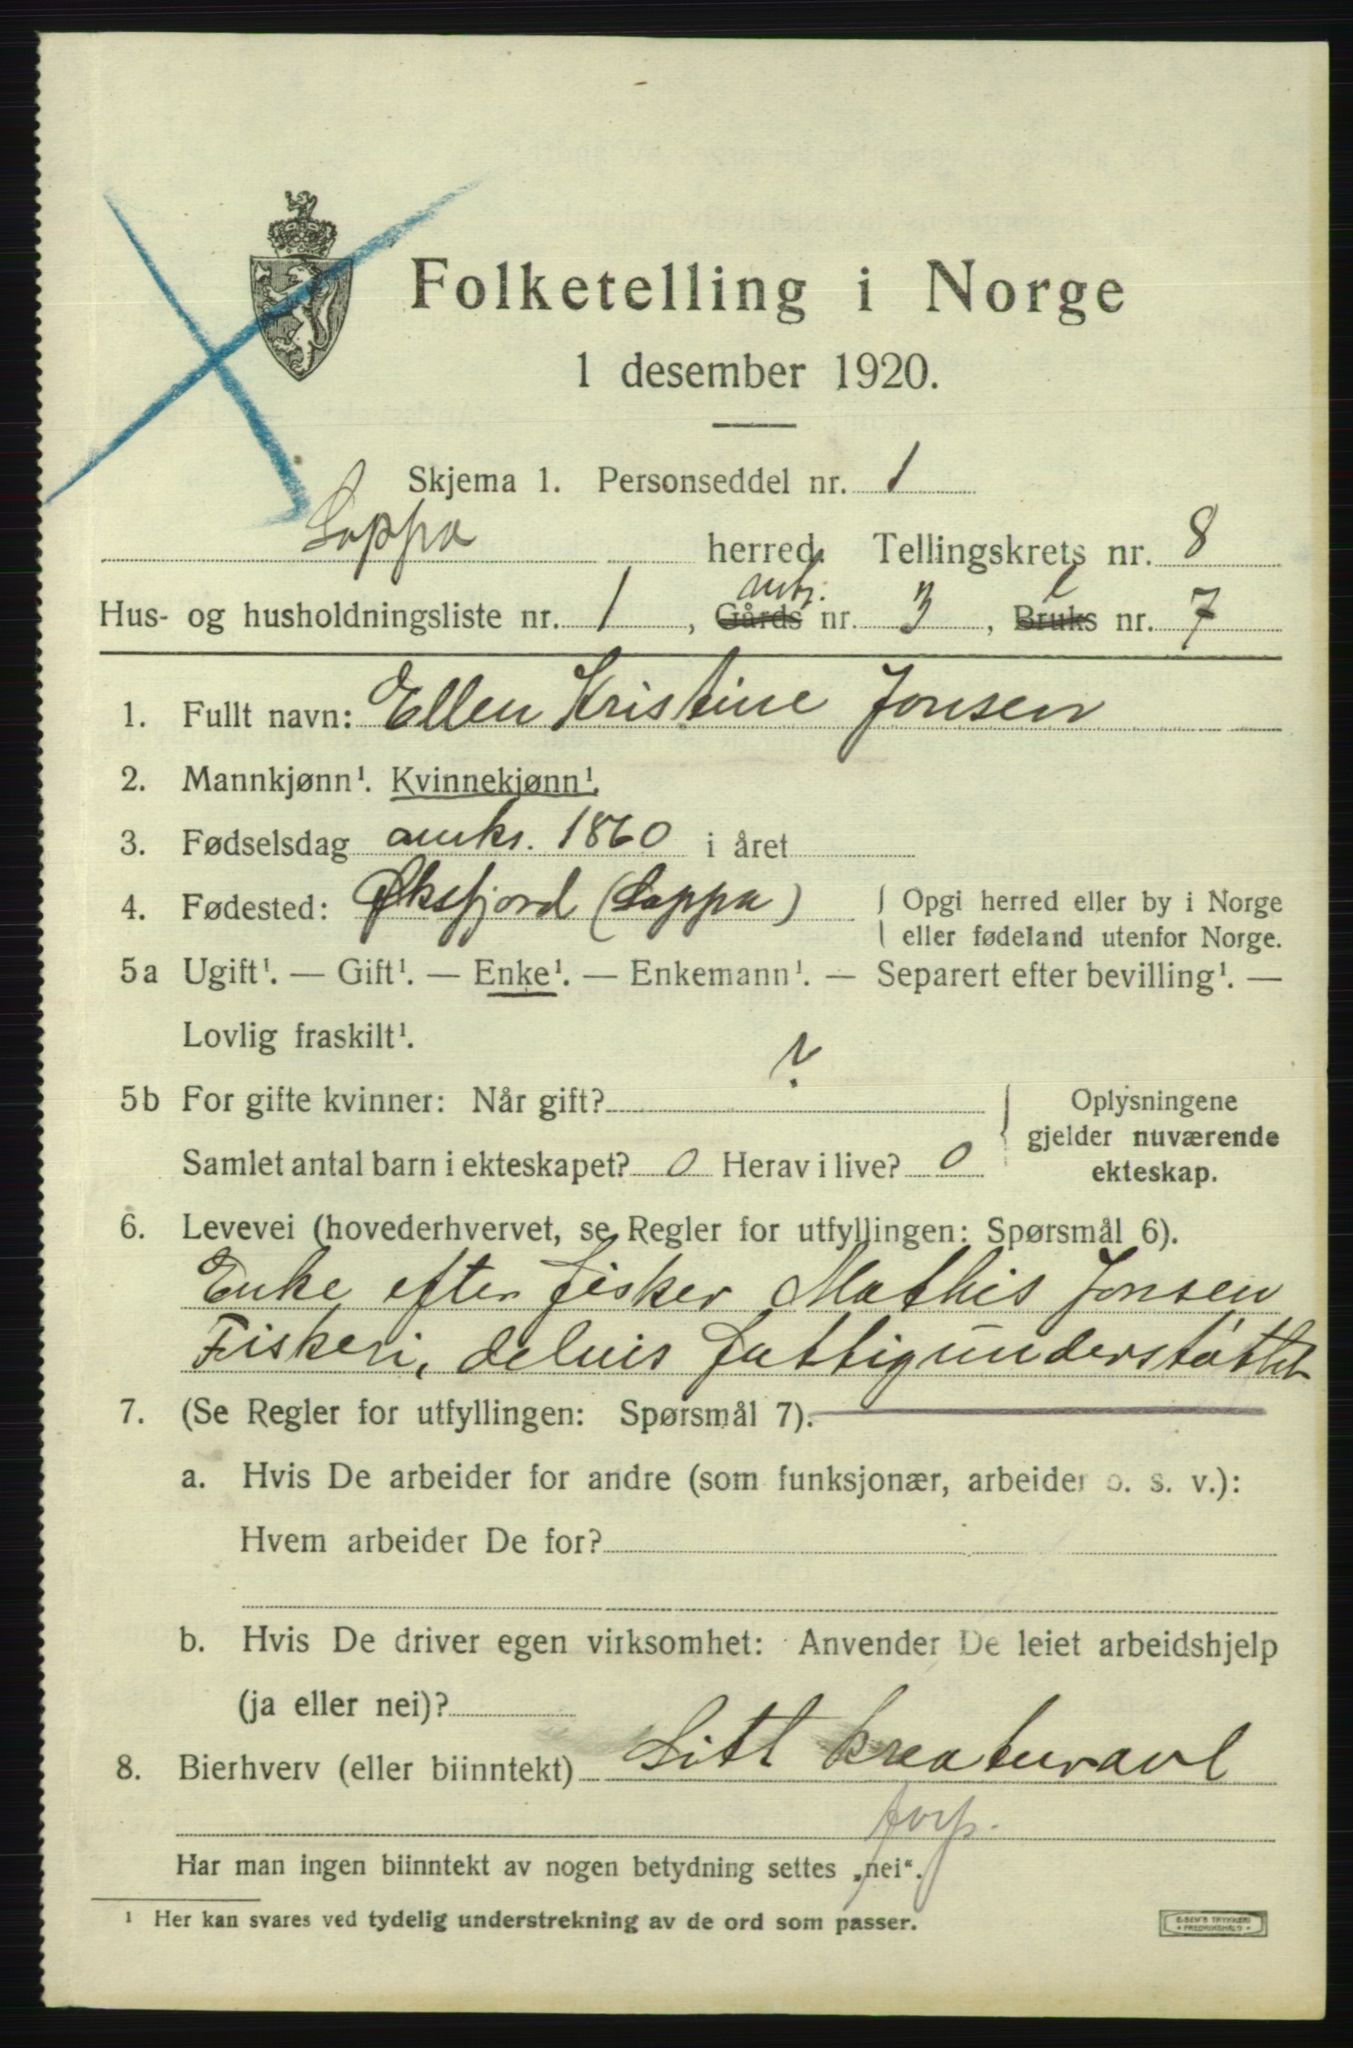 Folketelling i Norge
1 desember 1920.
Skjema 1. Personseddel nr. 1
Loppa herred. Tellingskrets nr. 8
Hus- og husholdningsliste nr. 1, Gårds nr. 3, Bruks nr. 7
1. Fullt navn: Ellen Kristine Jonsen
2. Mannkjønn¹. Kvinnekjønn¹.
3. Fødselsdag omkr. 1860 i året
4. Fødested: Øksfjord (Loppa) Opgi herred eller by i Norge
eller fødeland utenfor Norge.
5a Ugift¹. — Gift¹. — Enke¹. — Enkemann¹. — Separert efter bevilling¹. —
Lovlig fraskilt¹.
5b For gifte kvinner: Når gift? ? Oplysningene
gjelder nuværende
Samlet antal barn i ekteskapet? 0 Herav i live? 0 ekteskap.
6. Levevei (hovederhvervet, se Regler for utfyllingen: Spørsmål 6).
Enke efter fisker Mathis Jonsen
Fiskeri, delvis fattigunderstøttet
7. (Se Regler for utfyllingen: Spørsmål 7).
a. Hvis De arbeider for andre (som funksjonær, arbeider o. s. v.):
Hvem arbeider De for?
b. Hvis De driver egen virksomhet: Anvender De leiet arbeidshjelp
(ja eller nei)?
8. Bierhverv (eller biinntekt) Litt kreaturavl
forp.
Har man ingen biinntekt av nogen betydning settes „nei“.
¹ Her kan svares ved tydelig understrekning av de ord som passer.